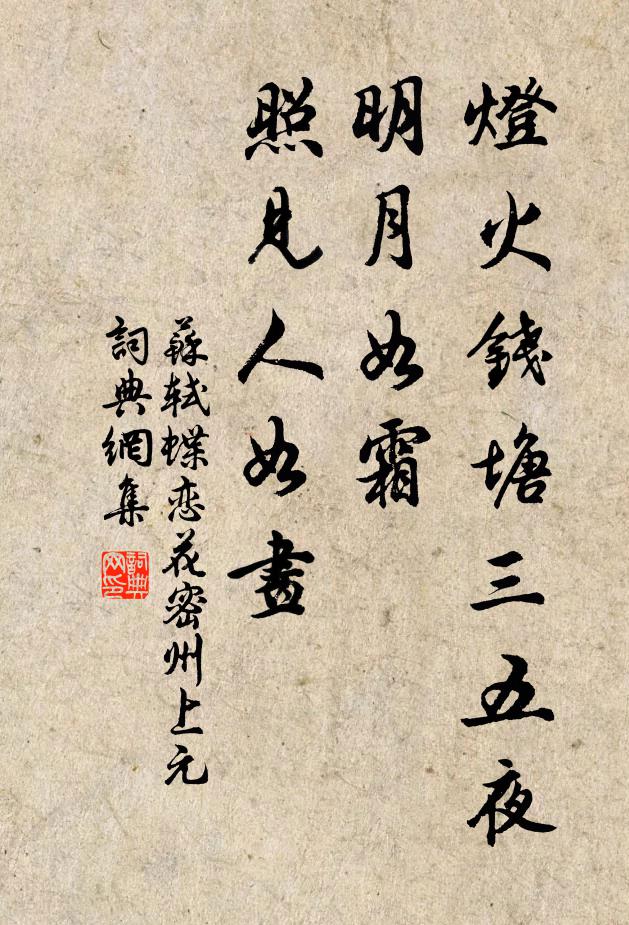 燈火錢塘三五夜
明月如霜
照見人如畫
蘇軾蝶恋花密州上元
詞典網集
詞典网印